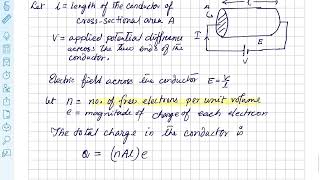 Let l = length of the conductor of
cross-sectional area A
V = applied potential difference
across the two ends of the
conductor.
Electric field across the conductor E = V/l
Let n = no. of free electrons per unit volume
e = magnitude of charge of each electron
The total charge in the conductor is
Q = (nAl)e
A
l
I
E
V